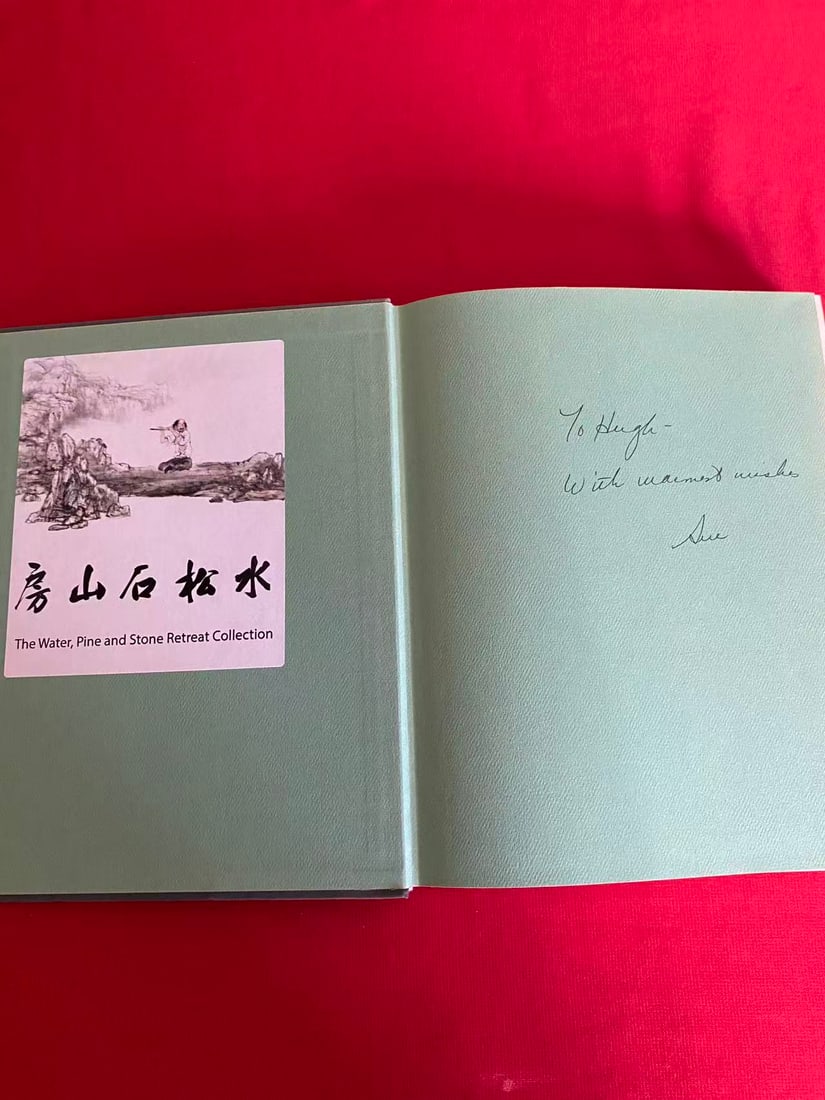 水松石山房
The Water, Pine and Stone Retreat Collection
To Hugh-
With warmest wishes
Sue